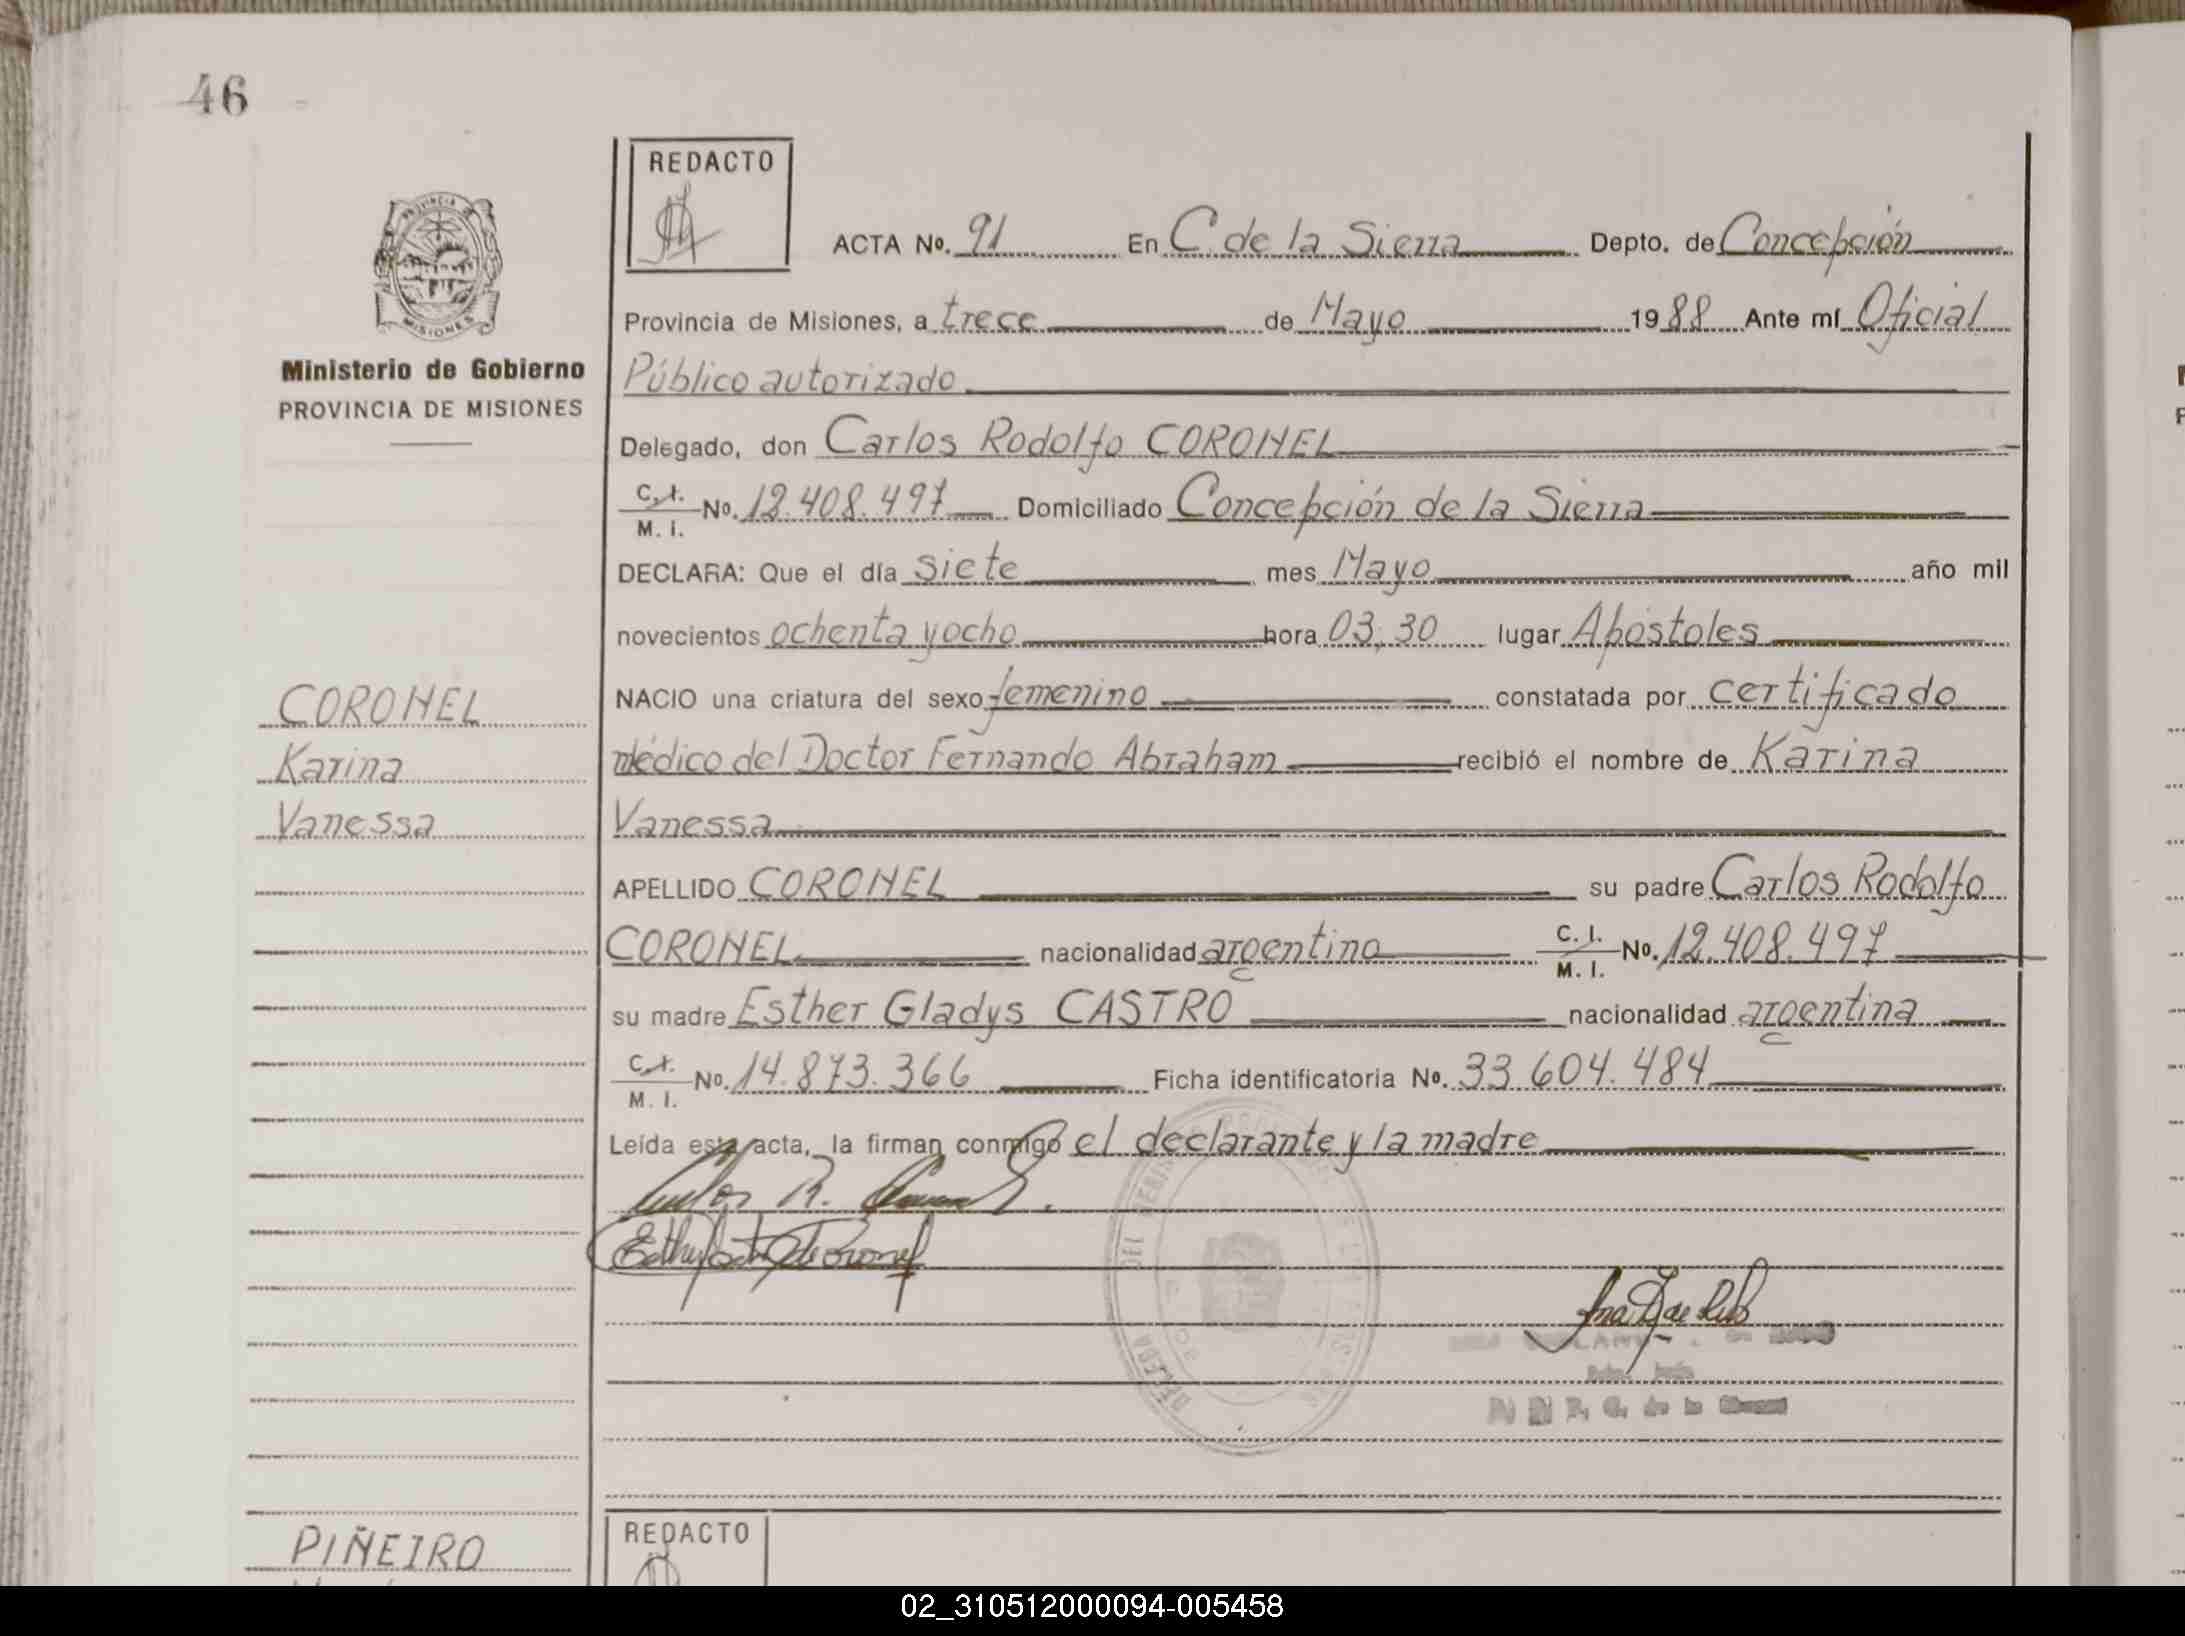 46
REDACTO
ACTA No. 91 En C. de la Sierra Depto. de Concepción
PROVINCIA DE
MISIONES
Provincia de Misiones, a trece de Mayo 1988 Ante mí Oficial
Ministerio de Gobierno
PROVINCIA DE MISIONES
Público autorizado.
Delegado, don Carlos Rodolfo CORONEL
C. I.
M. I.
No. 12.408.497 Domiciliado Concepción de la Sierra
DECLARA: Que el día siete mes Mayo año mil
novecientos ochenta y ocho hora 03,30 lugar Apóstoles
CORONEL
Karina
Vanessa
NACIO una criatura del sexo femenino constatada por certificado
médico del Doctor Fernando Abraham recibió el nombre de Karina
Vanessa
APELLIDO CORONEL su padre Carlos Rodolfo
CORONEL nacionalidad argentina C. I. M. I. No. 12.408.497
su madre Esther Gladys CASTRO nacionalidad argentina
C. I.
M. I.
No. 14.873.366 Ficha identificatoria No. 33.604.484
Leída esta acta, la firman conmigo el declarante y la madre
PIÑEIRO
REDACTO
02_310512000094-005458